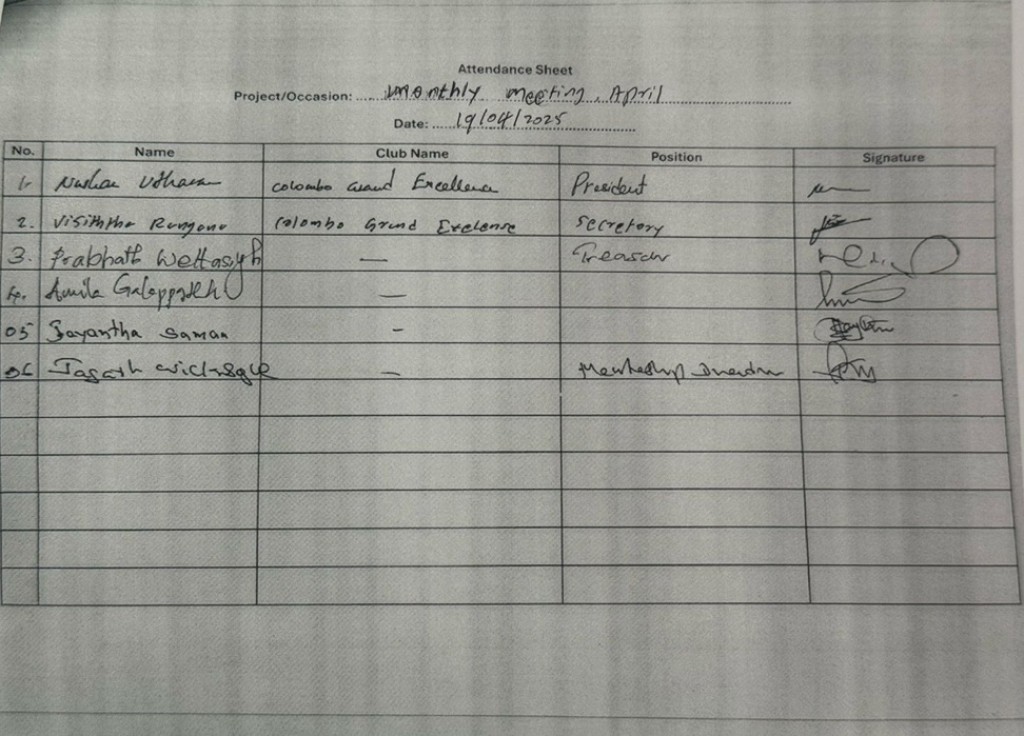 Attendance Sheet
Project/Occasion: Monthly meeting, April
Date: 19/04/2025
No. Name Club Name Position Signature
1. Colombo Grand Excellence President
2. Visiththa Rangana Colombo Grand Exelense Secretary
3. Prabhath Wettasigh —
4. Amila Galappathi —
05 Jayantha Saman -
06 Jagath —